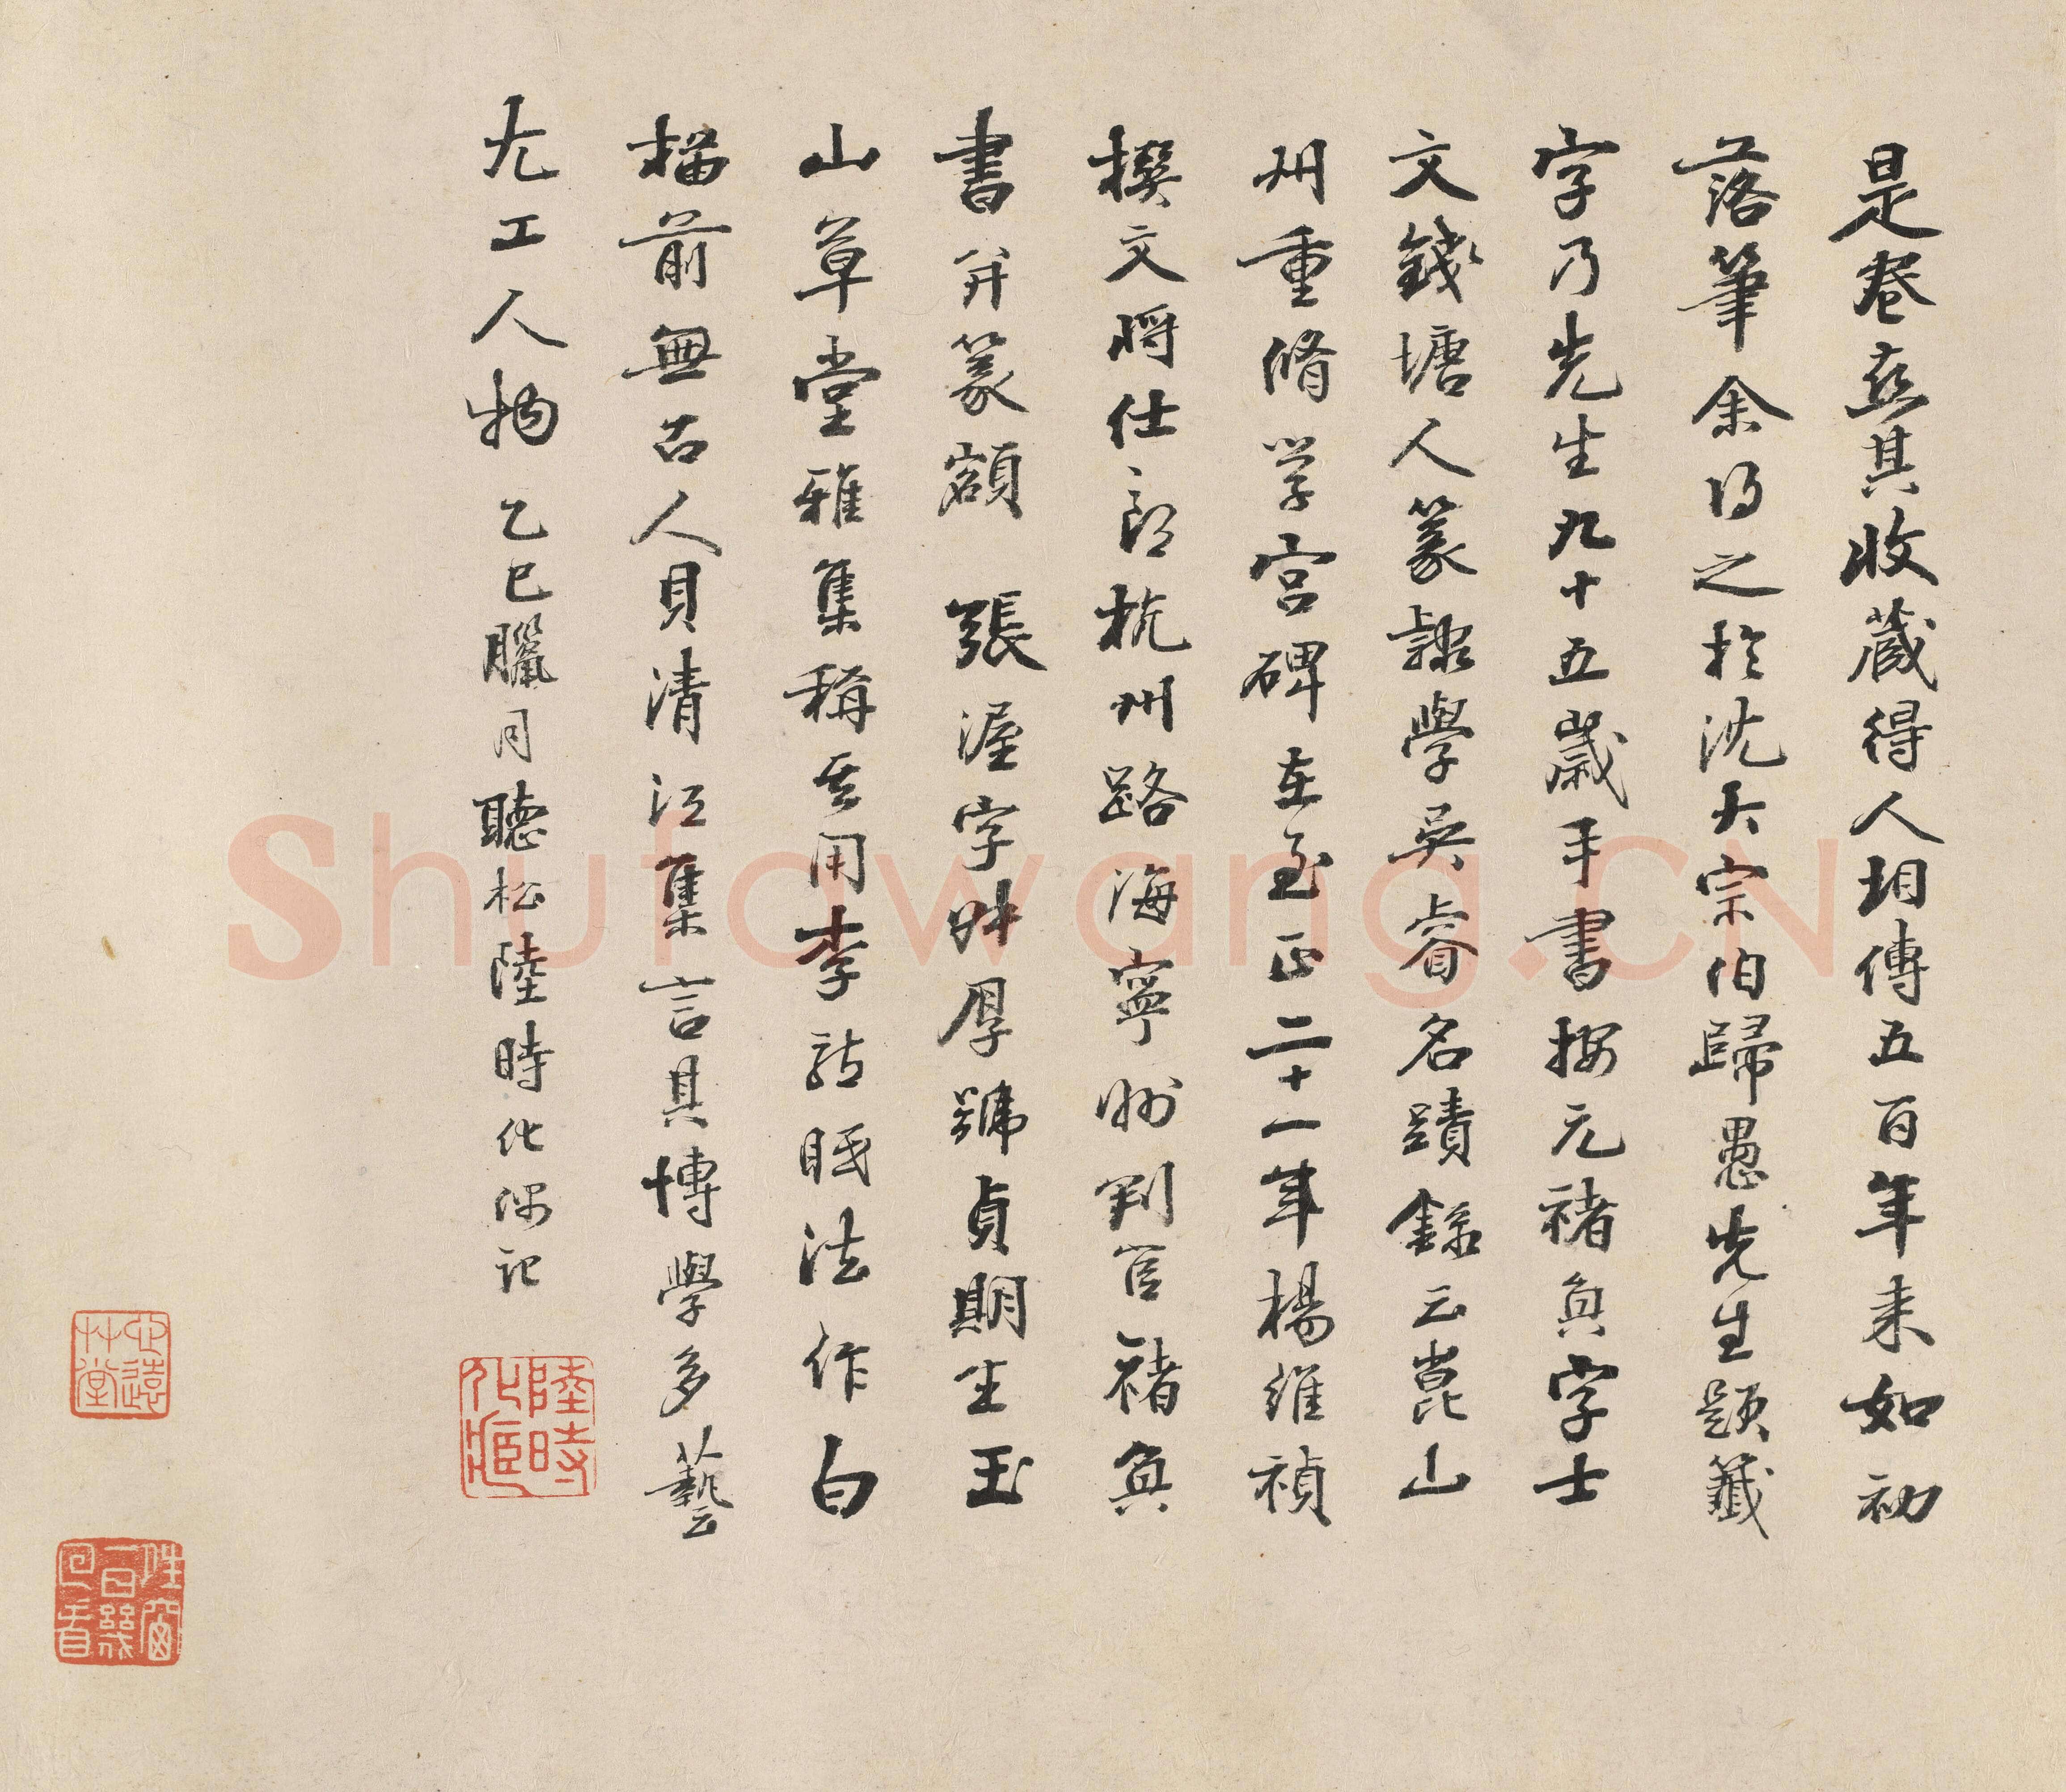 是卷並其收藏得人相傳五百年来如初
落筆余得之於沈大宗伯歸愚先生題籤
字乃先生九十五歲手書按元褚奐字士
文錢塘人篆隸學吳睿名蹟錄云崑山
州重脩学宮碑在至正二十一年楊維禎
撰文将仕郎杭州路海寧州判官褚奐
書并篆額 張渥字叔厚號貞期生玉
山草堂雅集稱其用李龍眠法作白
描前無古人貝清江集言其博學多藝
尤工人物 乙巳臘月聽松陸時化偶记
陸時化
心遠草堂
Shufawang.CN